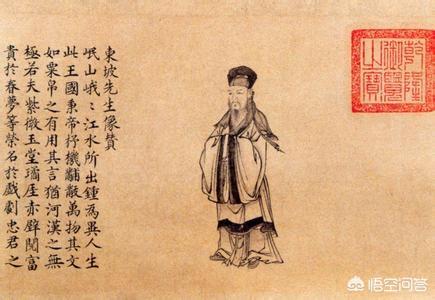 乾隆御覽之寶
東坡先生像贊
岷山峩〻江水所出鍾為異人生
此王國秉帝杼機黼黻萬物其文
如粟帛之有用其言猶河漢之無
極若夫紫微玉堂瓊厓赤壁閱富
貴於春夢等榮名於戲劇忠君之
悟空问答